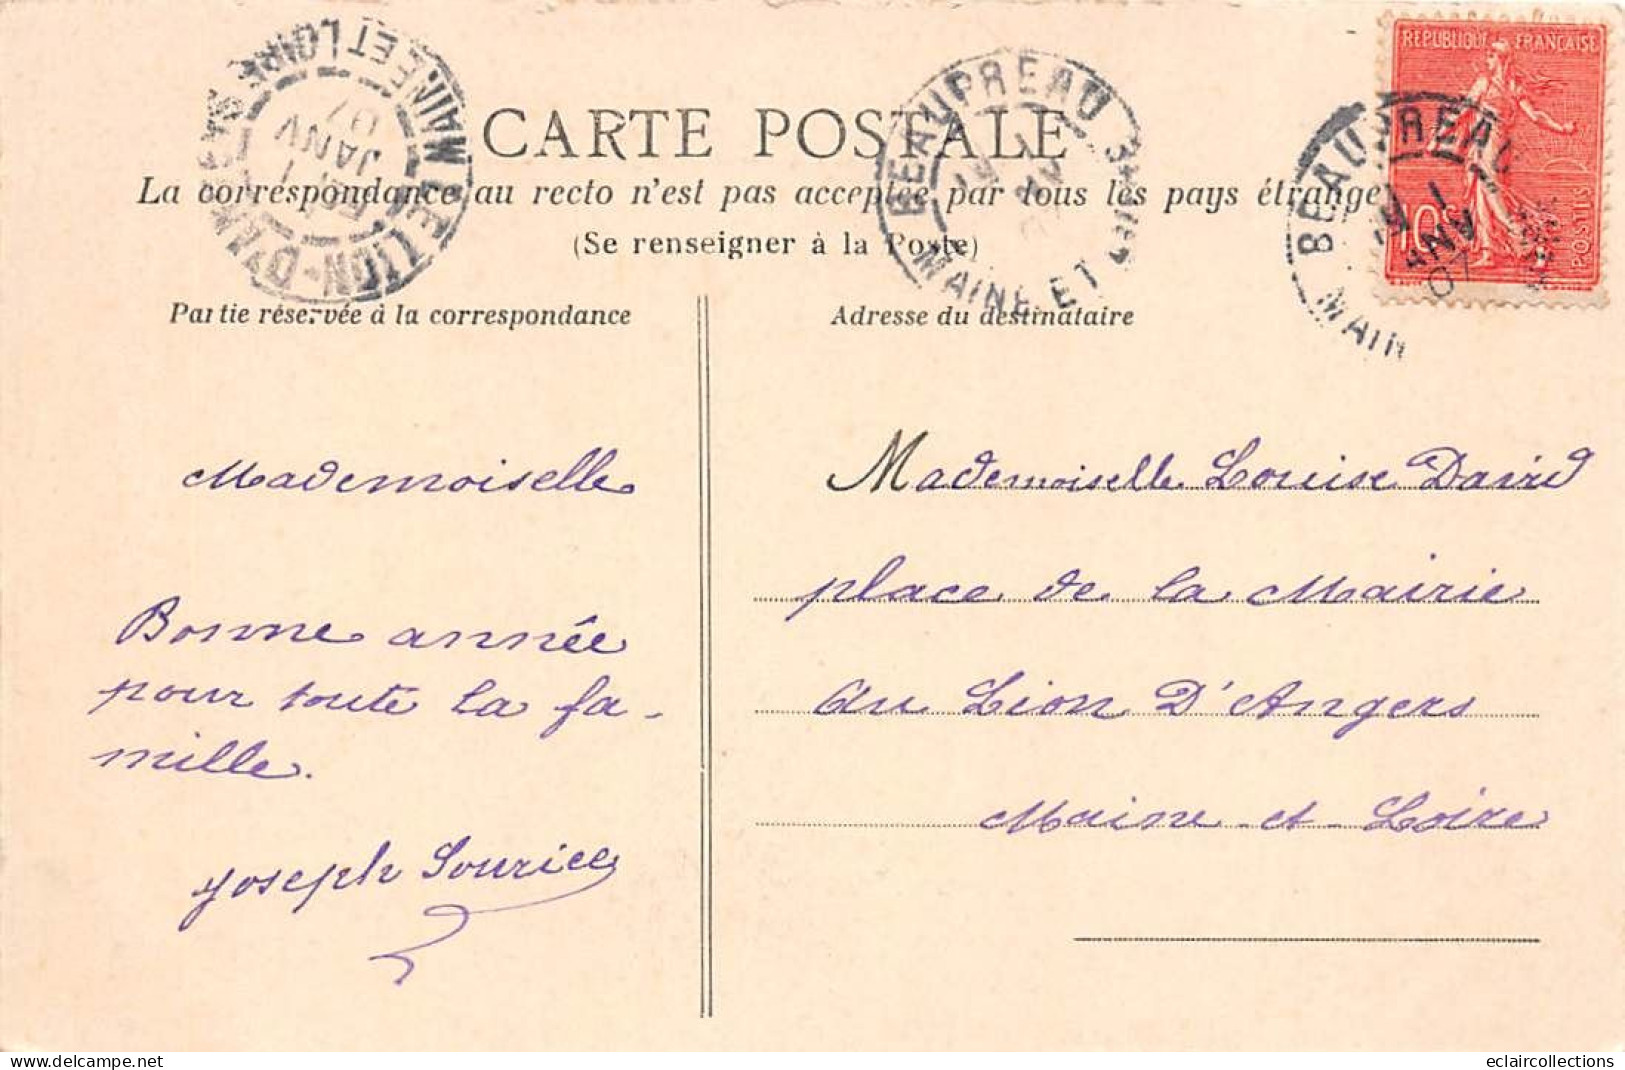 CARTE POSTALE
La correspondance au recto n'est pas acceptée par tous les pays étrange
(Se renseigner à la Poste)
LE LION-D'ANGERS MAINE ET LOIRE
1
JANV
07
BEAUPREAU
MAINE ET
REPUBLIQUE FRANCAISE
10
POSTES
BEAUPREAU
1
JANV
07
MAIN
Partie réservée à la correspondance
Mademoiselle
Bonne année
pour toute la fa-
mille.
Joseph Sourice
Adresse du destinataire
Mademoiselle Louise David
place de la Mairie
au Lion D'Angers
Maine-et-Loire
www.delcampe.net
eclaircollections